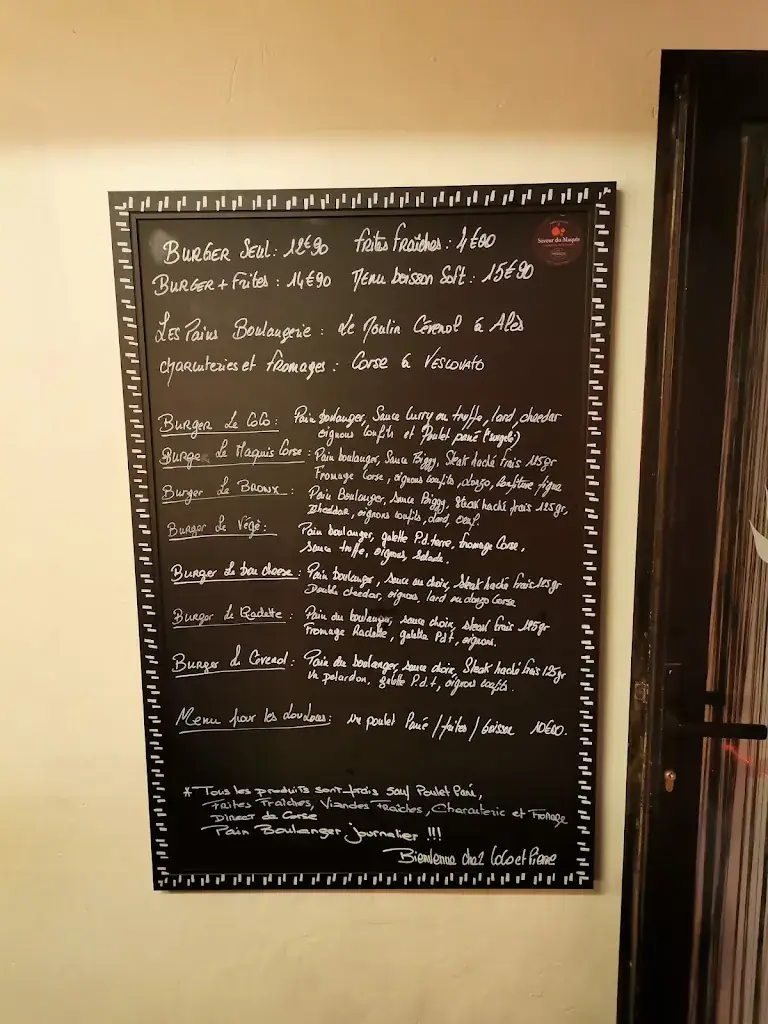 BURGER Seul : 12€90 Frites Fraîches : 4€00
BURGER + Frites : 14€90 Menu boisson Soft : 15€90
Saveur du Maquis
Les Pains Boulangerie : Le Moulin Cévenol à Alès
charcuteries et fromages : Corse à VESCOVATO
Burger Le CoCo : Pain boulanger, Sauce Curry ou truffe, lard, cheedar
oignons confits et Poulet pané (surgelé)
Burge Le Maquis Corse : Pain boulanger, Sauce Biggy, Steak haché frais 125gr
Fromage Corse, oignons confits, lonzo, Confiture figue
Burger Le BRONX : Pain Boulanger, sauce Biggy, Steak haché frais 125gr,
Cheddar, oignons confits, lard, oeuf.
Burger Le Végé : Pain boulanger, galette P.d.terre, fromage Corse,
sauce truffe, oignons, salade.
Burger Le bon cheese : Pain boulanger, sauce au choix, Steak haché frais 125gr
Double cheedar, oignons, lard ou lonzo Corse
Burger Le Raclette : Pain du boulanger, sauce choix, steak frais 125gr
Fromage Raclette, galette P.d.t, oignons.
Burger Le Cevenol : Pain du boulanger, sauce choix, Steak haché frais 125gr
Un pelardon, galette P.d.t, oignons confits.
Menu pour les Loulous : un poulet Pané / frites / boisson 10€00.
* Tous les produits sont frais sauf Poulet Pané,
Frites Fraîches, Viandes Fraîches, Charcuterie et Fromage
Direct de Corse
Pain Boulanger journalier !!!
Bienvenue chez CoCo et Pierre